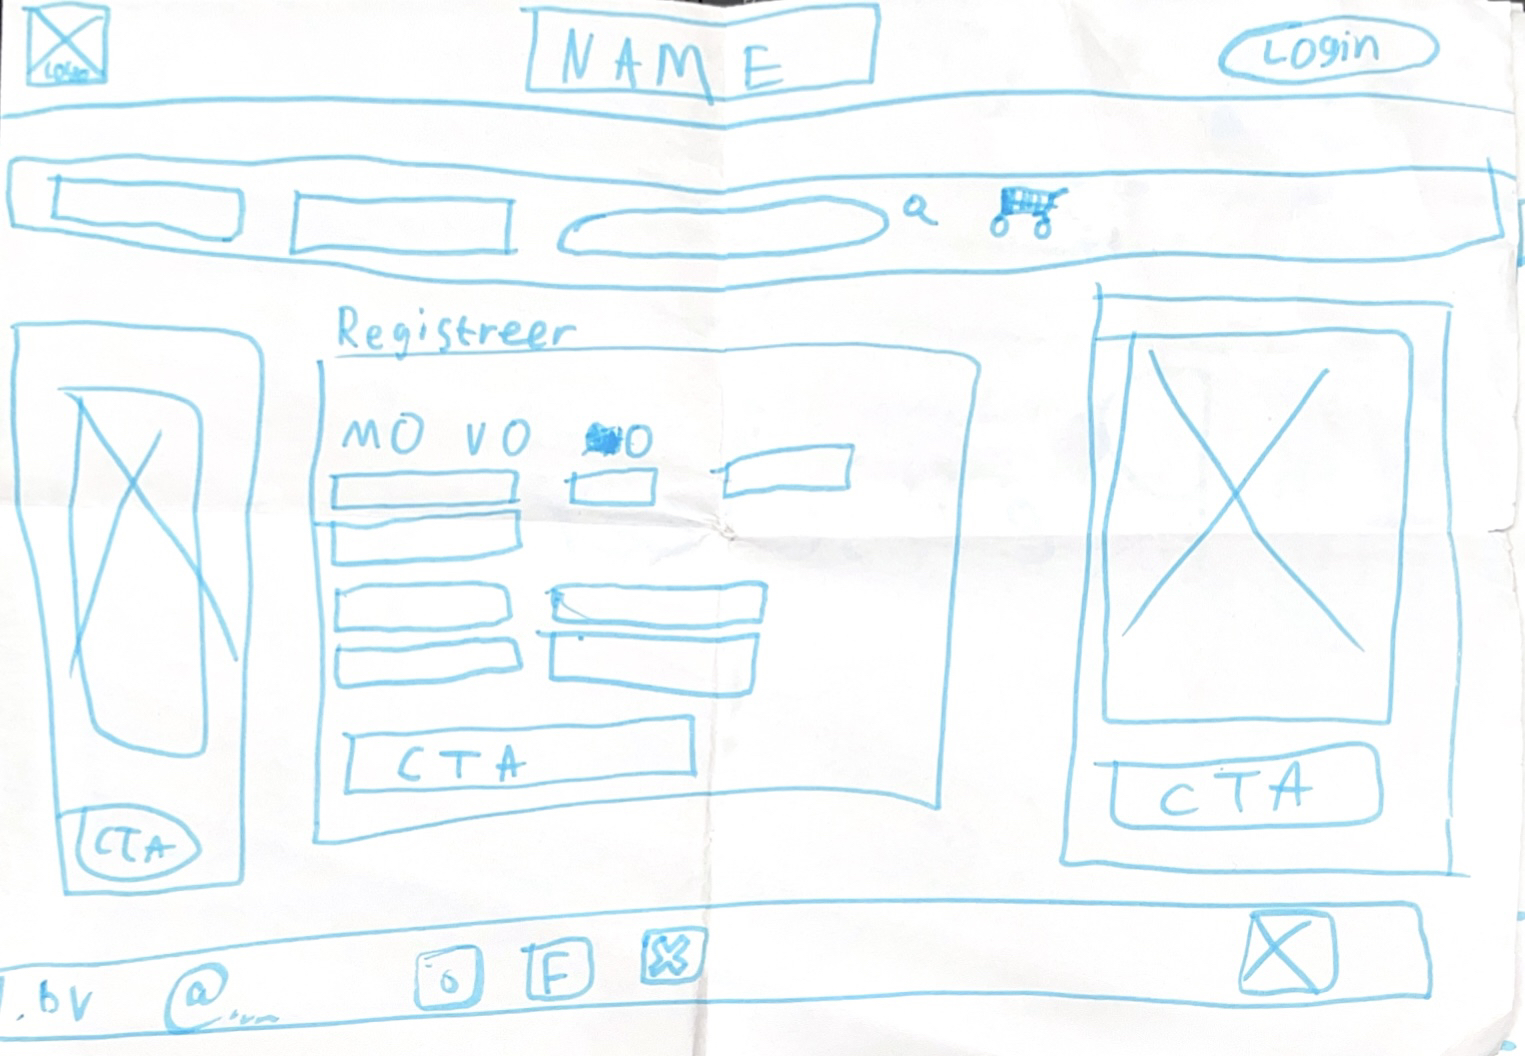 LOGO
NAME
Login
Registreer
MO VO O
CTA
CTA
CTA
.bv @....
F X